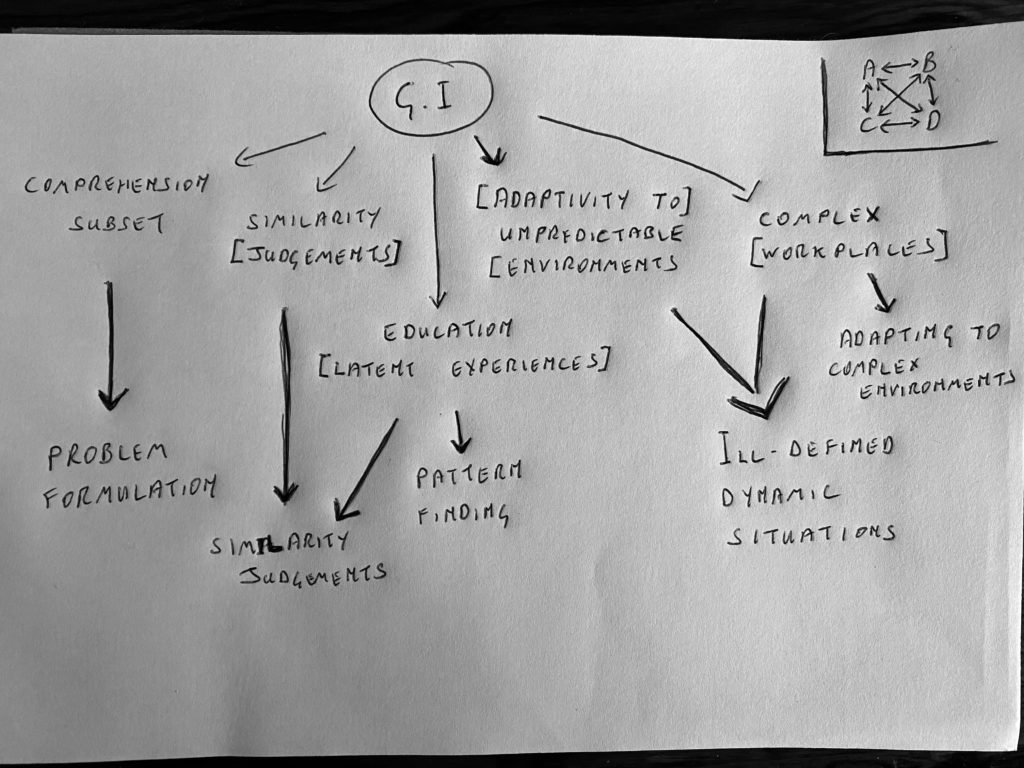 G.I
A B
C D
COMPREHENSION
SUBSET
SIMILARITY
[JUDGEMENTS]
[ADAPTIVITY TO]
UMPREDICTABLE
[ENVIRONMENTS
COMPLEX
[WORKPLACES]
EDUCATION
[LATENT EXPERIENCES]
ADAPTING TO
COMPLEX
ENVIRONMENTS
PROBLEM
FORMULATION
SIMILARITY
JUDGEMENTS
PATTERN
FINDING
ILL-DEFINED
DYNAMIC
SITUATIONS